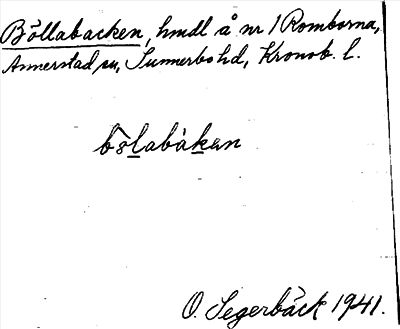 Böllabacken, hmdl å nr 1 Romborna,
Annerstad sn, Sunnerbo hd, Kronob. l.
bölabàkan
O. Segerbäck 1941.